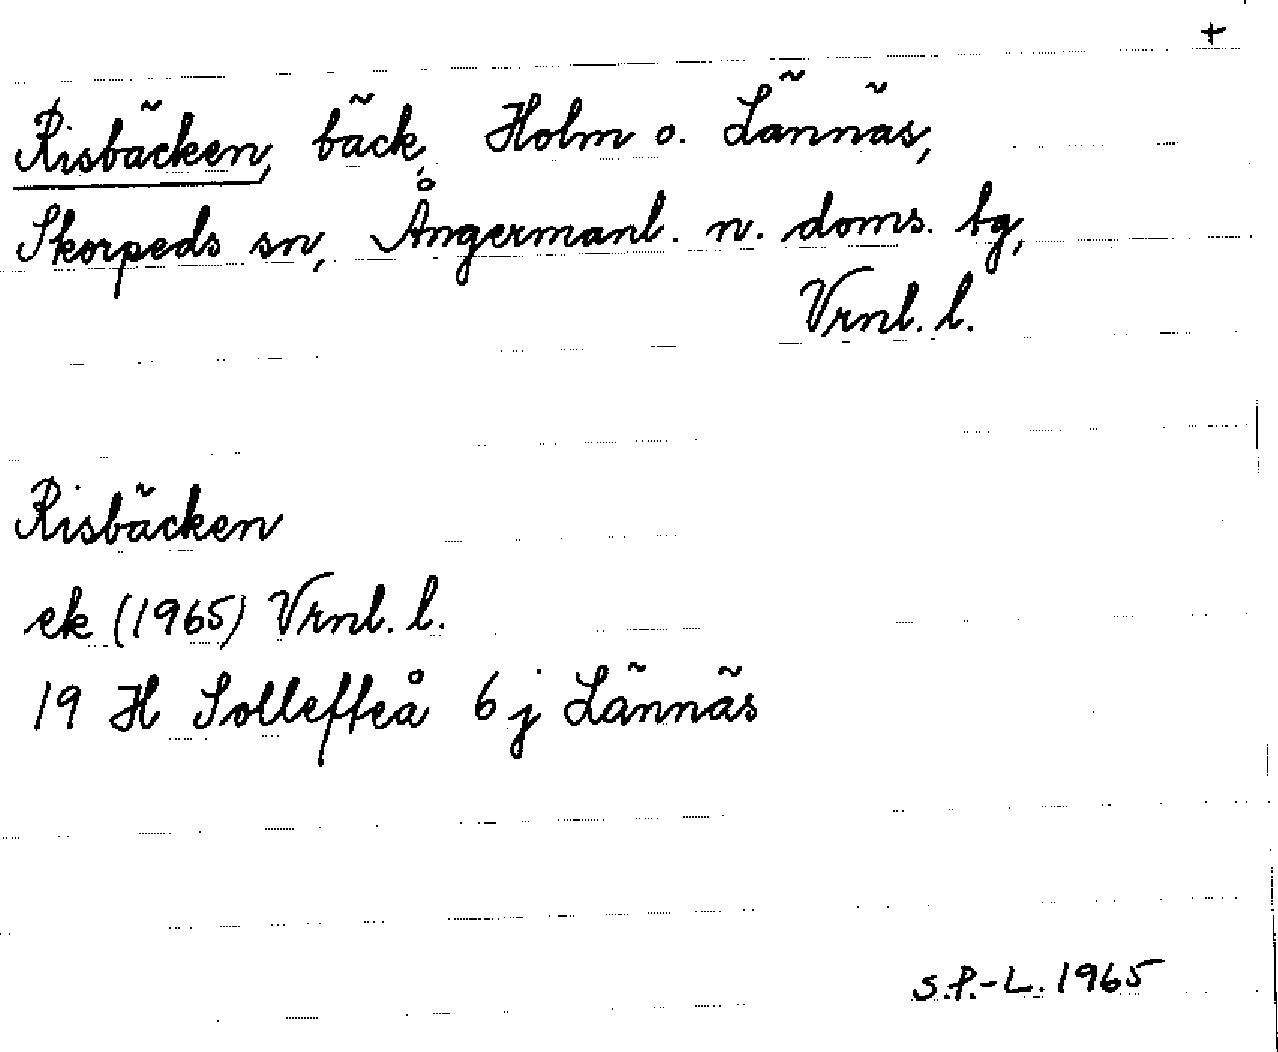 +
Risbäcken, bäck, Holm o. Lännäs,
Skorpeds sn, Ångermanl. n. doms. bg,
Vrnl. l.
Risbäcken
ek (1965) Vrnl. l.
19 H Sollefteå 6 j Lännäs
S.P.-L. 1965